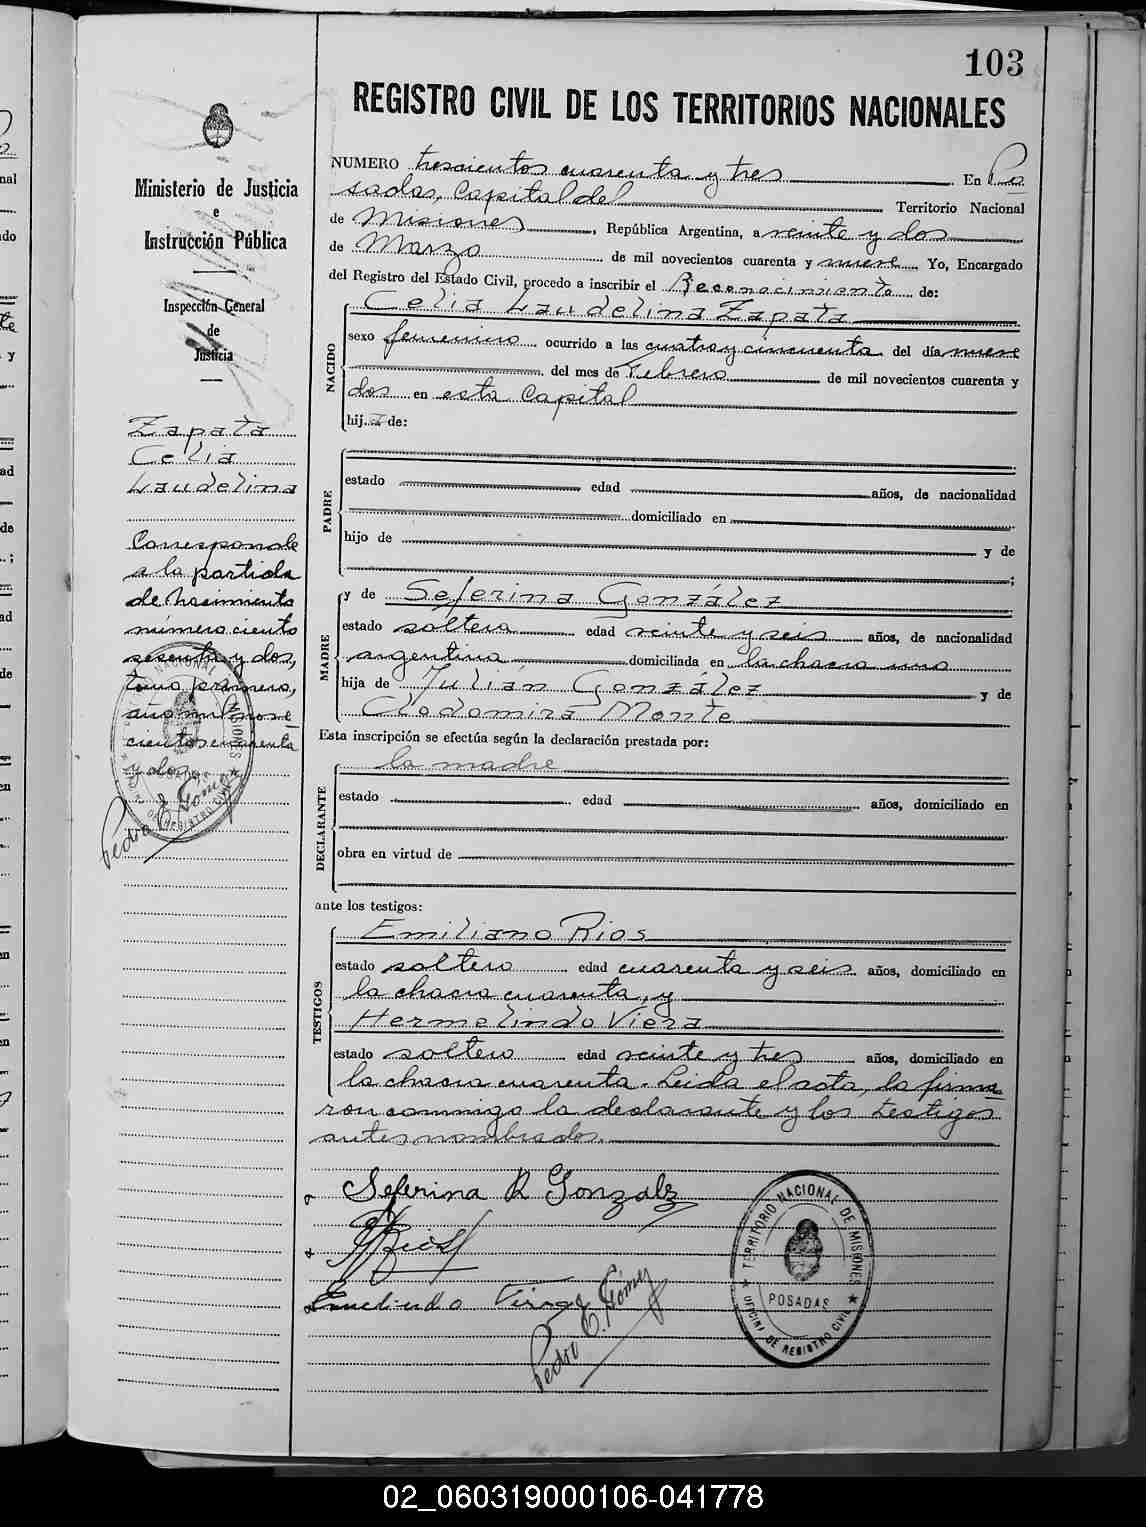 103
REGISTRO CIVIL DE LOS TERRITORIOS NACIONALES
Ministerio de Justicia
e
Instrucción Pública
Inspección General
de
Justicia
Zapata
Celia
Laudelina
Corresponde
a la partida
de nacimiento
número ciento
sesenta y dos,
tomo primero,
año mil nove
cientos cuarenta
y dos
Pedro E. Gómez
NUMERO trescientos cuarenta y tres En Po
sadas, Capital del Territorio Nacional
de Misiones, República Argentina, a veinte y dos
de Marzo de mil novecientos cuarenta y nueve Yo, Encargado
del Registro del Estado Civil, procedo a inscribir el Reconocimiento de:
NACIDO
Celia Laudelina Zapata
sexo femenino ocurrido a las cuatro y cincuenta del día nueve
del mes de Febrero de mil novecientos cuarenta y
dos en esta Capital
hija de:
PADRE
estado edad años, de nacionalidad
domiciliado en
hijo de y de
;
MADRE
y de Seferina González
estado soltera edad veinte y seis años, de nacionalidad
argentina domiciliada en la chacra uno
hija de Julián González y de
Clodomira Monte
Esta inscripción se efectúa según la declaración prestada por:
DECLARANTE
la madre
estado edad años, domiciliado en
obra en virtud de
ante los testigos:
TESTIGOS
Emiliano Rios
estado soltero edad cuarenta y seis años, domiciliado en
la chacra cuarenta, y
Hermelindo Viera
estado soltero edad veinte y tres años, domiciliado en
la chacra cuarenta. Leida el acta, la firma
ron conmigo la declarante y los testigos
antes nombrados.
Seferina R Gonzalz
E Rios
Pedro E. Gómez
TERRITORIO NACIONAL DE MISIONES
POSADAS
OFICINA DE REGISTRO CIVIL
02_060319000106-041778